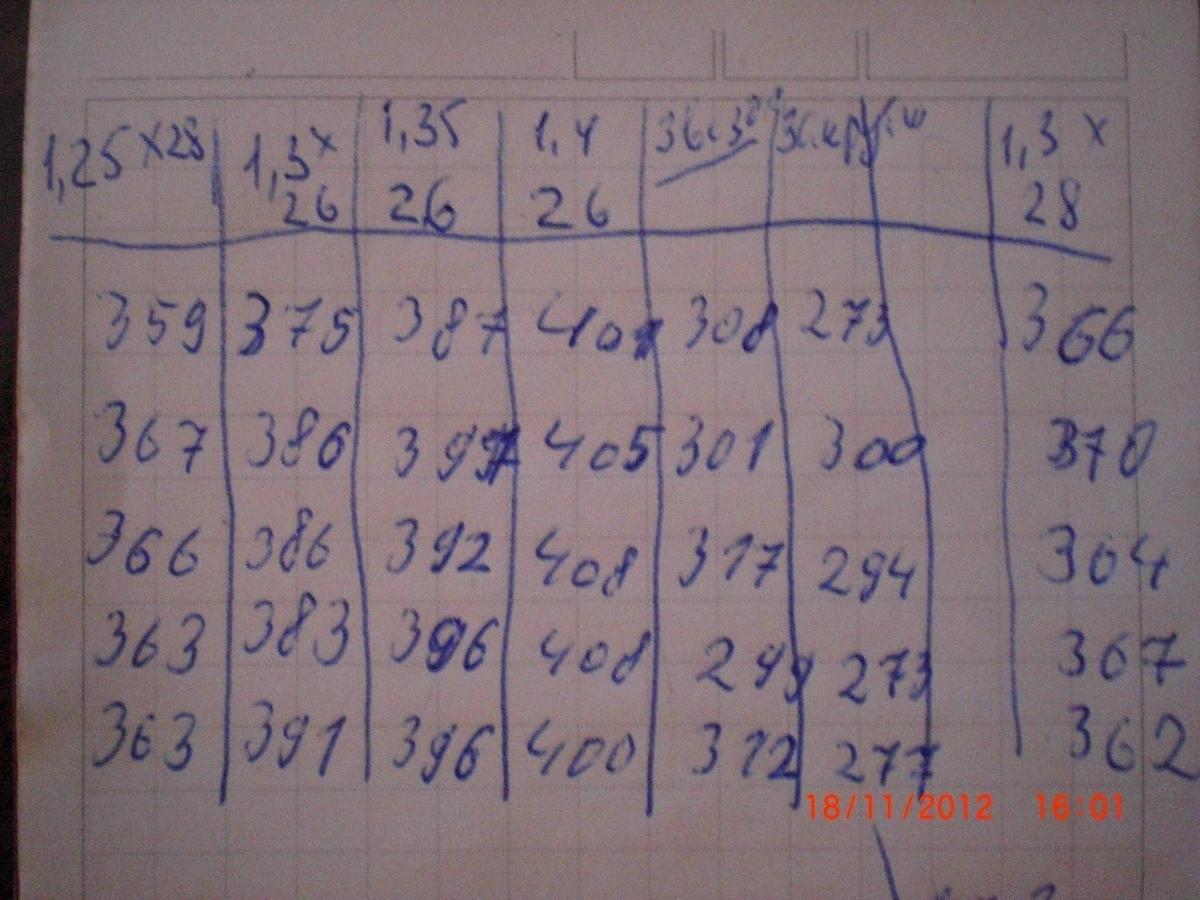 1,25 x28 1,3 x 1,35 1,4 1,3 x
26 26 26 28
359 375 387 308 273 366
367 386 405 301 300 370
366 386 392 408 317 294 364
363 383 396 408 299 273 367
363 391 396 400 312 277 362
18/11/2012 16:01